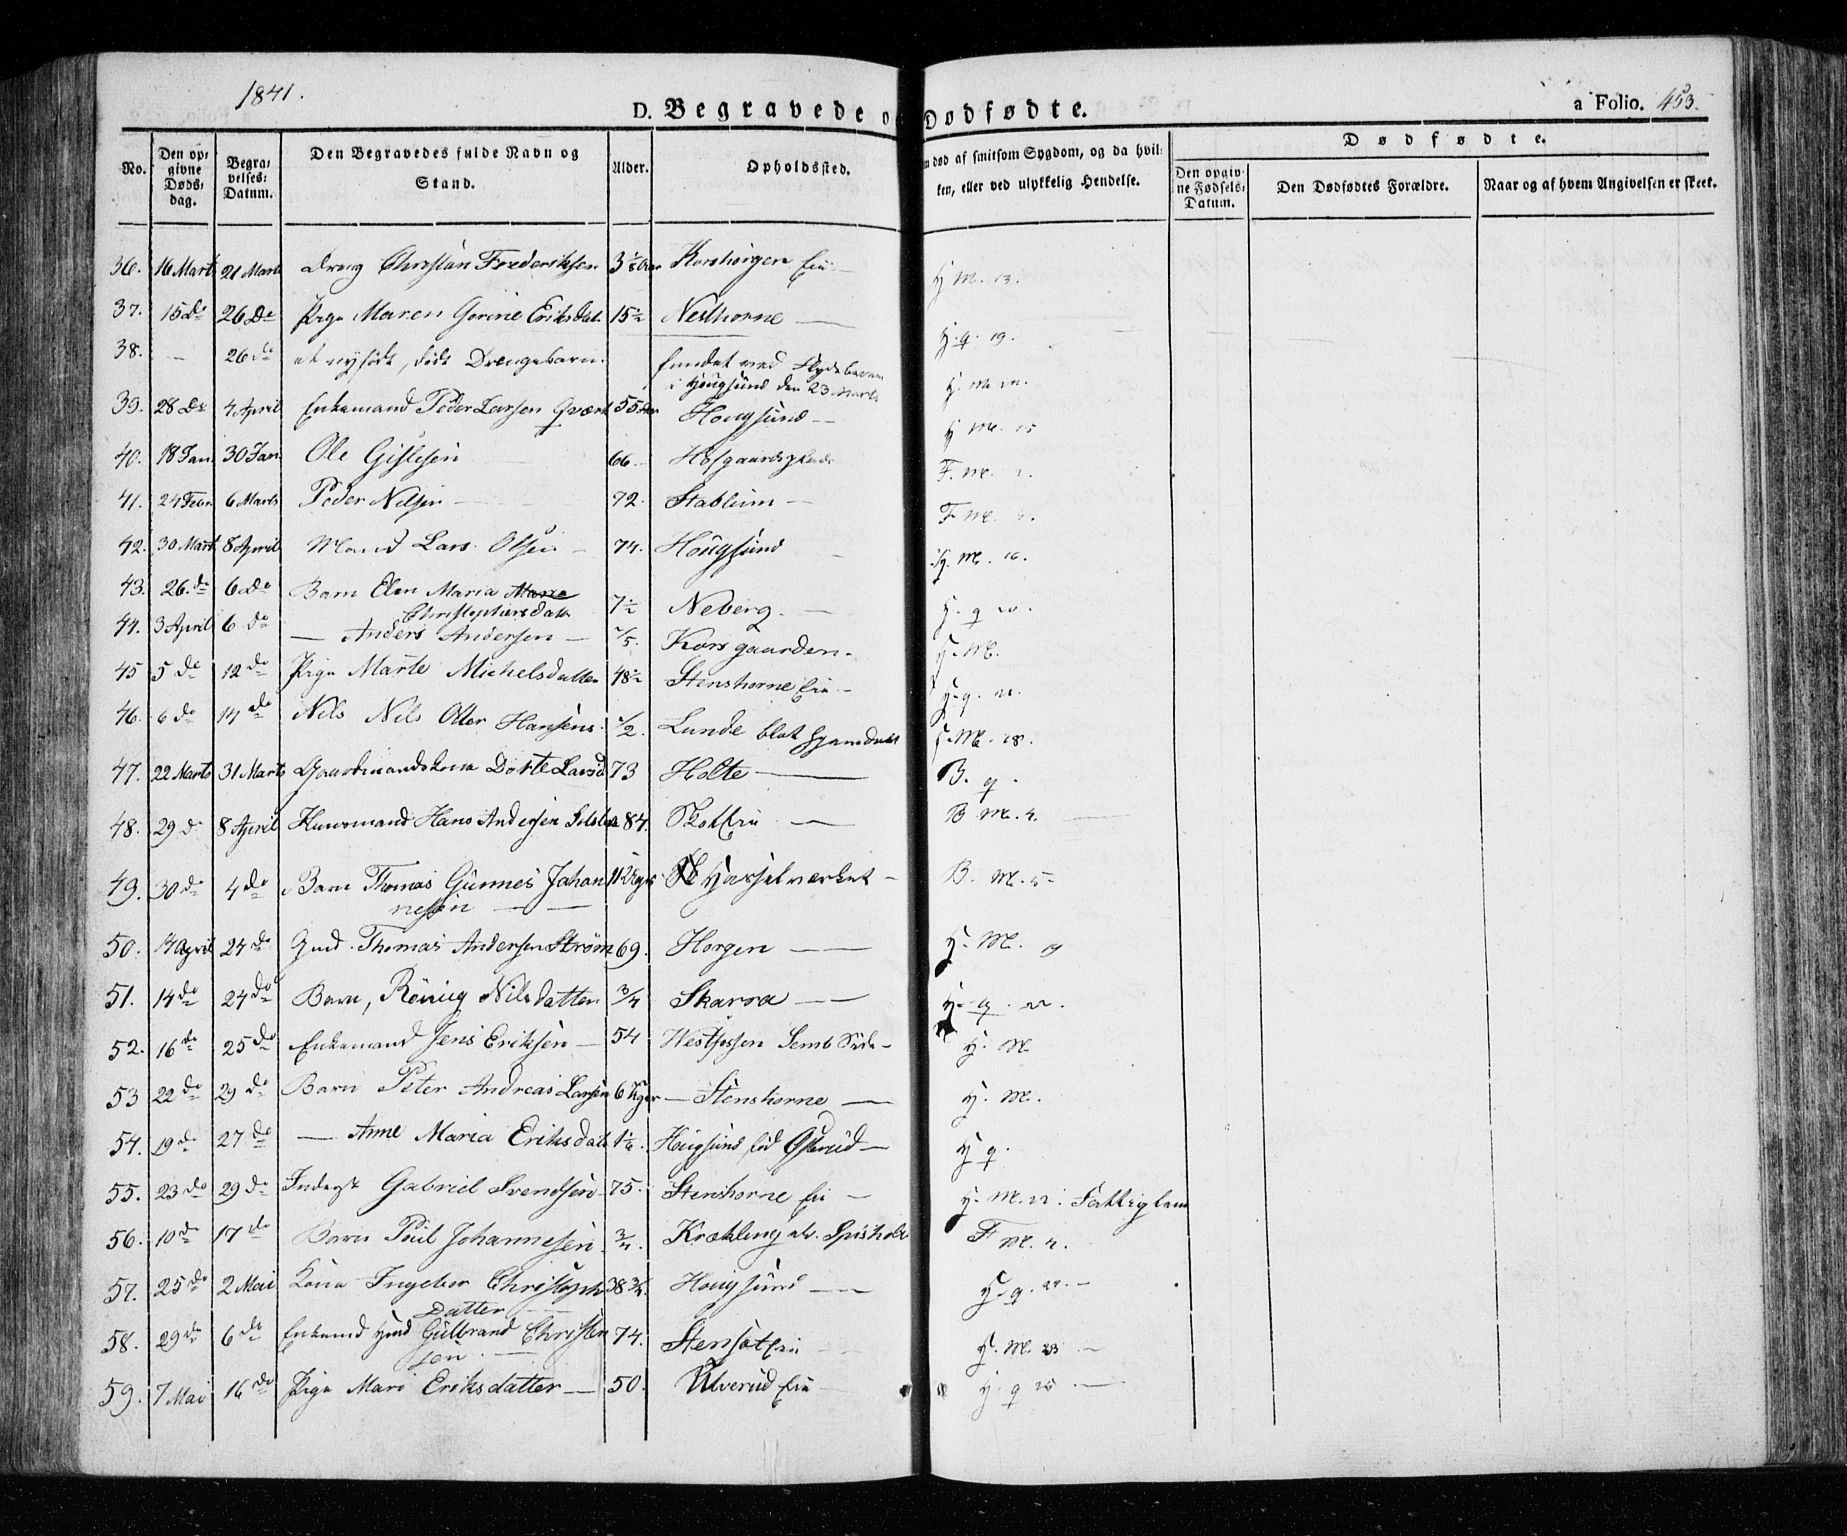 1841.
D. Begravede o Dødfødte.
a Folio. 453.
No.
Den opgivne Døds dag.
Begravelses Datum.
Den Begravedes fulde Navn og Stand.
Alder.
Opholdssted.
død af smitsom Sygdom, og da hvil-
ken, eller ved ulykkelig Hendelse.
Dødfødte.
Den opgivne Fødsels Datum.
Den Dødfødtes Forældre.
Naar og af hvem Angivelsen er skeet.
36. 16 Mart 21 Marts Dreng Christian Frederiksen 3 Korshorgen H. M. 13.
37. 15 do 26 do Pige Maren Gorine Eriksdat. 15 Nesthorne — H. q. 19.
38. — 26 do et nyfødt, dødt Drengebarn. fundet ved Flydebommen
i Hougsund den 23 Marts
39. 28 do 4 April Enkemand Peder Larsen 55 Hougsund — H. M. 15
40. 18 Jan 30 Jan Ole Gislesen 66 — Hofgaardsplads F. M.
41. 24 Febr 6 Marts Peder Nilsen — 72. Stablum — F. M. 4.
42. 30 Mart 8 April Mand Lars Olsen — 74. Hougsund H. M. 16.
43. 26 do 6 do Barn Elen Maria
Christophersdatt 7 Neberg. — H. q
44. 3 April 6 do — Anders Andersen — /5. Korsgaarden. H. M.
45 5 do 12 do Pige Marte Michelsdatter 48 Stenshorne Eie — H. q.
46. 6 do 14 do Nils Nils Otter Hansens. /2. Lunde M. 18.
47. 22 Marts 31 Marts Gaardmandskone Dorte Larsd 73 Holte — B. q.
48. 29 do 8 April Huusmand Hans Andersen 84. Eie — B. M. 4.
49. 30 do 4 do Barn Thomas Gunnes Johan
nesen — 11 Uger Hasselværket — B. M. 5
50. 14 April 24 do Gmd. Thomas Andersen Strøm 69. Horgen — H. M. 19
51. 14 do 24 do Barn, Rønnug Nilsdatter 3/4 Skarra — H. q.
52. 16 do 25 do Enkemand Jens Eriksen — 54 Westfossen Semb Side — H. M
53 22 do 29 do Barn Peter Andreas Larsen 6 Uger — Stenshorne — H. M.
54. 19 do 27 do — Anne Maria Eriksdatt 1/6. Hougsund, fød Østerud — H. q.
55. 23 do 29 do Inderst Gabriel Svendsen 75. Stenshorne Eie — H. M. Fattiglem
56. 10 do 17 do Barn Poul Johannesen 3/4. Krækling F. M. 4.
57. 25 do 2 Mai Kone Ingebor Christoph
datter 38 3/4 Hougsund — H. q.
58. 29 do 6 do Enkemd Hmd Gulbrand Christen
sen. — 74. Stenset Eie H. M. 23 —
59. 7 Mai 16 do Pige Mari Eriksdatter — 50. Ulverud Eie — H. q —